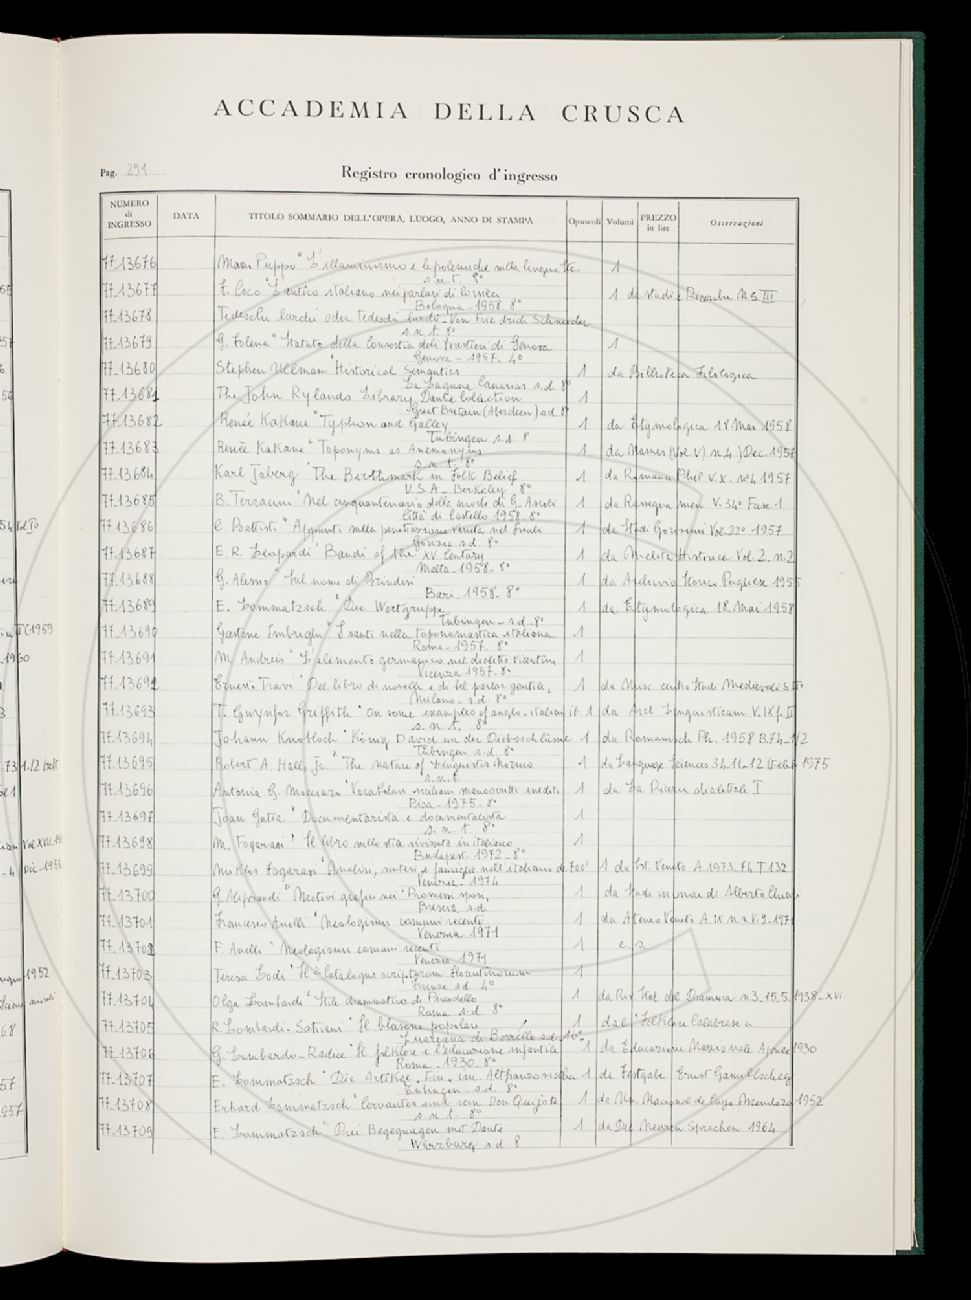 ACCADEMIA DELLA CRUSCA
Pag. 291
Registro cronologico d'ingresso
NUMERO di INGRESSO DATA TITOLO SOMMARIO DELL'OPERA, LUOGO, ANNO DI STAMPA Opuscoli Volumi PREZZO in lire Osservazioni
77.13676 Puppo "L'illuminismo e le polemiche sulla lingua 1
s.n.t. 8°
77.13677 F. Coco "L'antico italiano nei parlari di Corsica 1 da Studi e Ricerche N.S. III
Bologna - 1958. 8°
77.13678 Tedeschi lurchi oder Tedeschi lurchi - Von Friedrich Schneider
s.n.t. 8°
77.13679 G. Folena "Statuto della Consortia deli frustien di Genova 1
Genova - 1957. 4°
77.13680 Stephen Ullman "Historical Semantics 1 da Biblioteca Filologica
La Laguna Canarias s.d. 8°
77.13681 The John Rylands Library Dante Collection 1
Great Britain (Aberdeen) s.d. 8°
77.13682 Renée Kahane "Typhon and Galley 1 da Etymologica 18 Mai 1958
Tübingen s.d. 8
77.13683 Renée Kahane "Toponyms as Anemonyms 1 da Names (Vol V) n.4) Dec. 1957
s.n.t. 8°
77.13684 Karl Jaberg "The Birthmark in Folk Belief 1 da Romance Phil. V.X. n°4 1957
U.S.A - Berkeley 8°
77.13685 B. Terracini "Nel cinquantenario della morte di G. Ascoli 1 da Rassegna men V. 34° Fasc. 1
Città di Castello 1958. 8°
77.13686 C. Battisti "Appunti sulla penetrazione veneta nel Friuli 1 da Studi Goriziani Vol. 22° 1957
Gorizia s.d. 8°
77.13687 E.R. Leopardi "Bandi of the XV Century 1 da Melita Historica Vol. 2. n.2
Malta - 1958 - 8°
77.13688 G. Alessio "Sul nome di Brindisi 1 da Archivio Storico Pugliese 1955
Bari - 1958 - 8°
77.13689 E. Lommatzsch "Die Wortgruppe 1 da Etymologica 18. Mai 1958
Tubingen - s.d - 8°
77.13690 Gastone Imbrighi "I santi nella toponomastica italiana 1
Roma - 1957. 8°
77.13691 M. Andreis "L'elemento germanico nel dialetto vicentino 1
Vicenza 1957 - 8°
77.13692 Ernesto Travi "Dal libro di novelle e di bel parlar gentile, 1
Milano - s.d 8°
77.13693 T. Gwynfor Griffith "On some examples of anglo-italian 1 da Arch Linguisticum V. IX f. II
s.n.t. 8°
77.13694 Johann Knobloch "König David un der Diebsschlüssel 1 da Romanisch Ph. 1958 B.74-1/2
Tübingen s.d. 8°
77.13695 Robert A. Hall, Jr. "The nature of Linguistic Norms 1 da Language Sciences 34. 11-12 (Febr) 1975
s.n.t.
77.13696 Antonia G. Mocciaro "Vocabolari siciliani manoscritti inediti 1 da La Ricerca dialettale I
Pisa - 1975 - 8°
77.13697 Joan Gutia "Documentarista e documentalista 1
s.n.t. 8°
77.13698 M. Fogarasi "Il libro nello stia 1
Budapest. 1972 - 8°
77.13699 Miklós Fogarasi "Analisi, sintesi e famiglie nell'italiano de 700' 1 da Ist. Veneto A. 1973-74 T. 132
Venezia - 1974
77.13700 G. Aliprandi "Motivi grafici nei "Promessi sposi, 1 da Studi in mem di Alberto Chiari
Brescia s.d.
77.13701 Francesco Anelli "Neologismi comuni recenti 1 da Ateneo Veneto A. IX n.s. V. 9. 1971
Venezia 1971
77.13702 F. Anelli "Neologismi comuni recenti 1 c.s
Venezia 1971
77.13703 Teresa Lodi "Il "Catalogus scriptorum florentinorum 1
Firenze s.d. 4°
77.13704 Olga Lombardi "Stile drammatico di Pirandello 1 da Riv Ital del Dramma n.3. 15.5. 1938 - XVI
Roma s.d. 8°
77.13705 R. Lombardi-Satriani "Il blasone popolare 1 dal "Folklore Calabrese
77.13706 G. Lombardo-Radice "Il folklore e l'educazione infantile 1 da Educazione Nazionale Aprile 1930
Roma - 1930. 8°
77.13707 E. Lommatzsch "Die Artikel. Ein. im. Altfranzösischen 1 da Festgabe Ernst Gamillscheg
Tübingen - s.d. 8°
77.13708 Erhard Lommatzsch "Cervantes und sein Don Quijote 1 1952
s.n.t. 8°
77.13709 E. Lommatzsch "Drei Begegnungen mit Dante 1 da Die Neueren Sprachen 1964
Würzburg s.d. 8